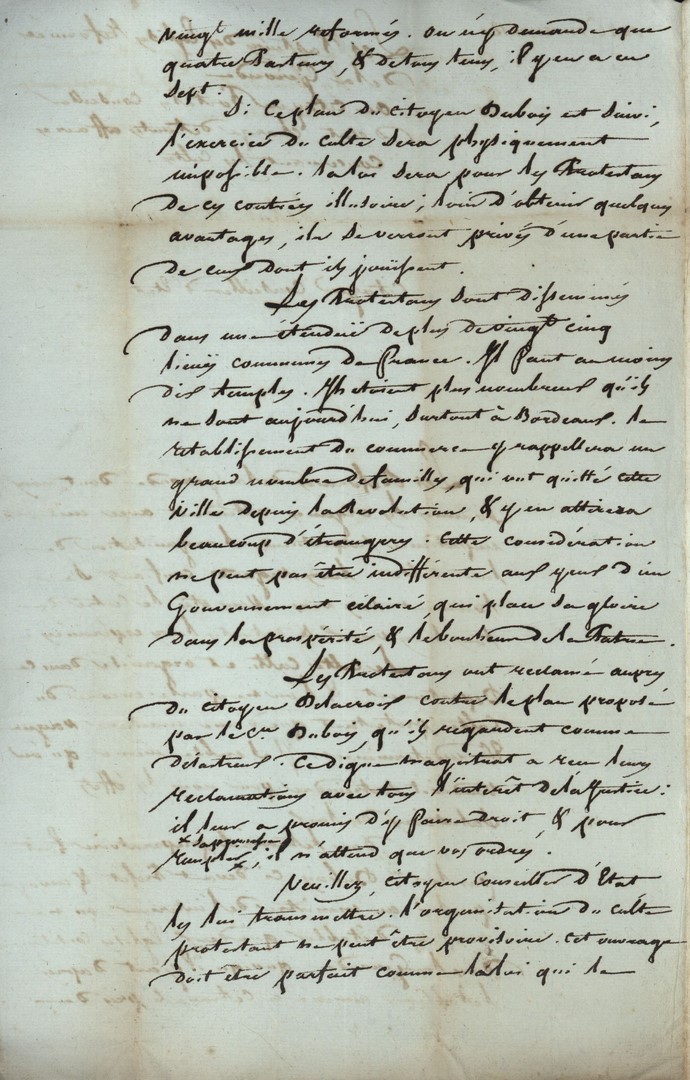 vingt mille reformés. on n'y demande que
quatre Pasteurs, & de tous tems, il y en a eu
sept.
Si ce plan du citoyen Dubois est suivi,
l'exercice du culte sera physiquement
impossible. la loi sera pour les Protestans
de ces contrées illusoire; loin d'obtenir quelques
avantages, ils se verront privés d'une partie
de ceux dont ils jouissent.
Les Protestans sont disseminés
dans une étendüe de plus de vingt cinq
lieuës communes de France. Il faut au moins
dix temples. Ils etoient plus nombreux qu'ils
ne sont aujourd'hui, surtout à Bordeaux. le
retablissement du commerce y rappellera un
grand nombre de familles, qui ont quitté cette
ville depuis la Revolution, & y en attirera
beaucoup d'étrangers. cette consideration
ne peut pas être indifférente aux yeux d'un
Gouvernement eclairé, qui place sa gloire
dans la prospérité, & le bonheur de la Patrie.
Les Protestans ont reclamé auprès
du citoyen Delacroix contre le plan proposé
par le cen Dubois, qu'ils regardent comme
désastreux. Ce digne magistrat a reçu leurs
reclamations avec tous l'intérêt de la Justice:
il leur a promis d'y faire droit, & pour
remplir × sa promesse ×, il n'attend que vos ordres.
Veuillez, citoyen Conseiller d'Etat
les lui transmettre. l'organisation du culte
protestant ne peut être provisoire. cet ouvrage
doit etre parfait comme la loi qui le